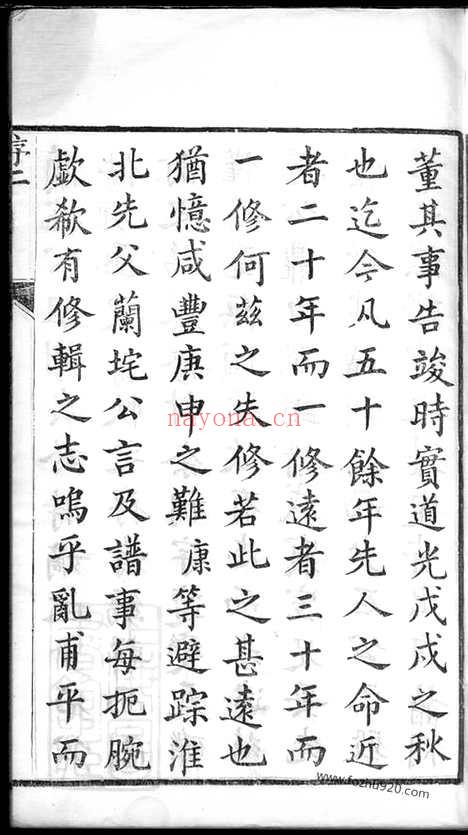 董其事告竣時實道光戊戌之秋
也迄今凡五十餘年先人之命近
者二十年而一修遠者三十年而
一修何茲之失修若此之甚遠也
猶憶咸豐庚申之難康等避踪淮
北先父蘭垞公言及譜事每扼腕
歔欷有修輯之志嗚乎亂甫平而
序二
nayona.cn
www.fozhu920.com